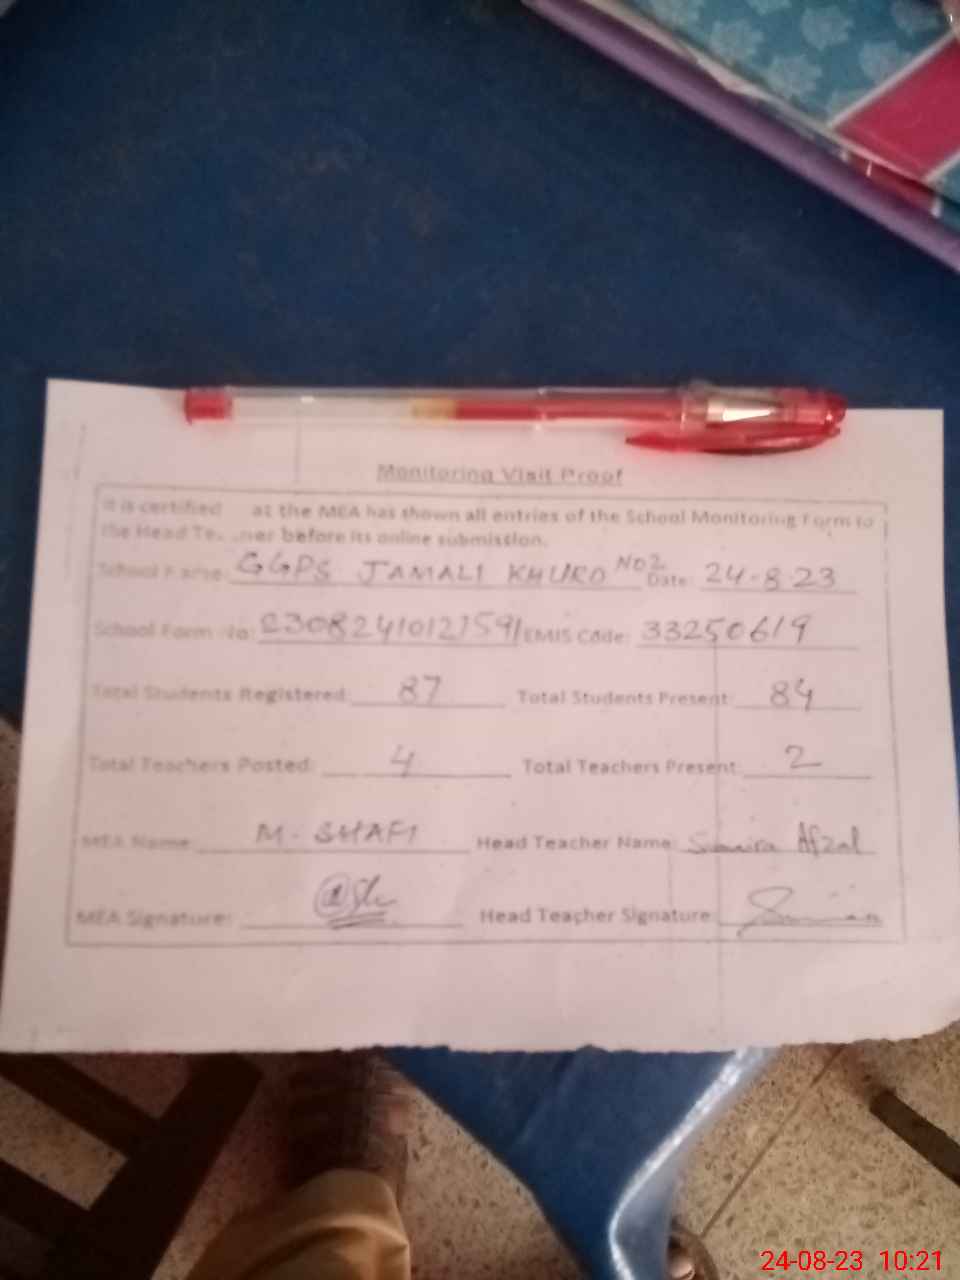 Monitoring Visit Proof
It is certified at the MEA has shown all entries of the School Monitoring Form to
the Head Te..ner before its online submission.
School Name: GGPS JAMALI KHURO No2 Date: 24-8-23
School Form No: EMIS Code: 33250619
Total Students Registered: 87 Total Students Present: 84
Total Teachers Posted: 4 Total Teachers Present: 2
MEA Name M. SHAFI Head Teacher Name: Afzal
MEA Signature: Head Teacher Signature:
24-08-23 10:21